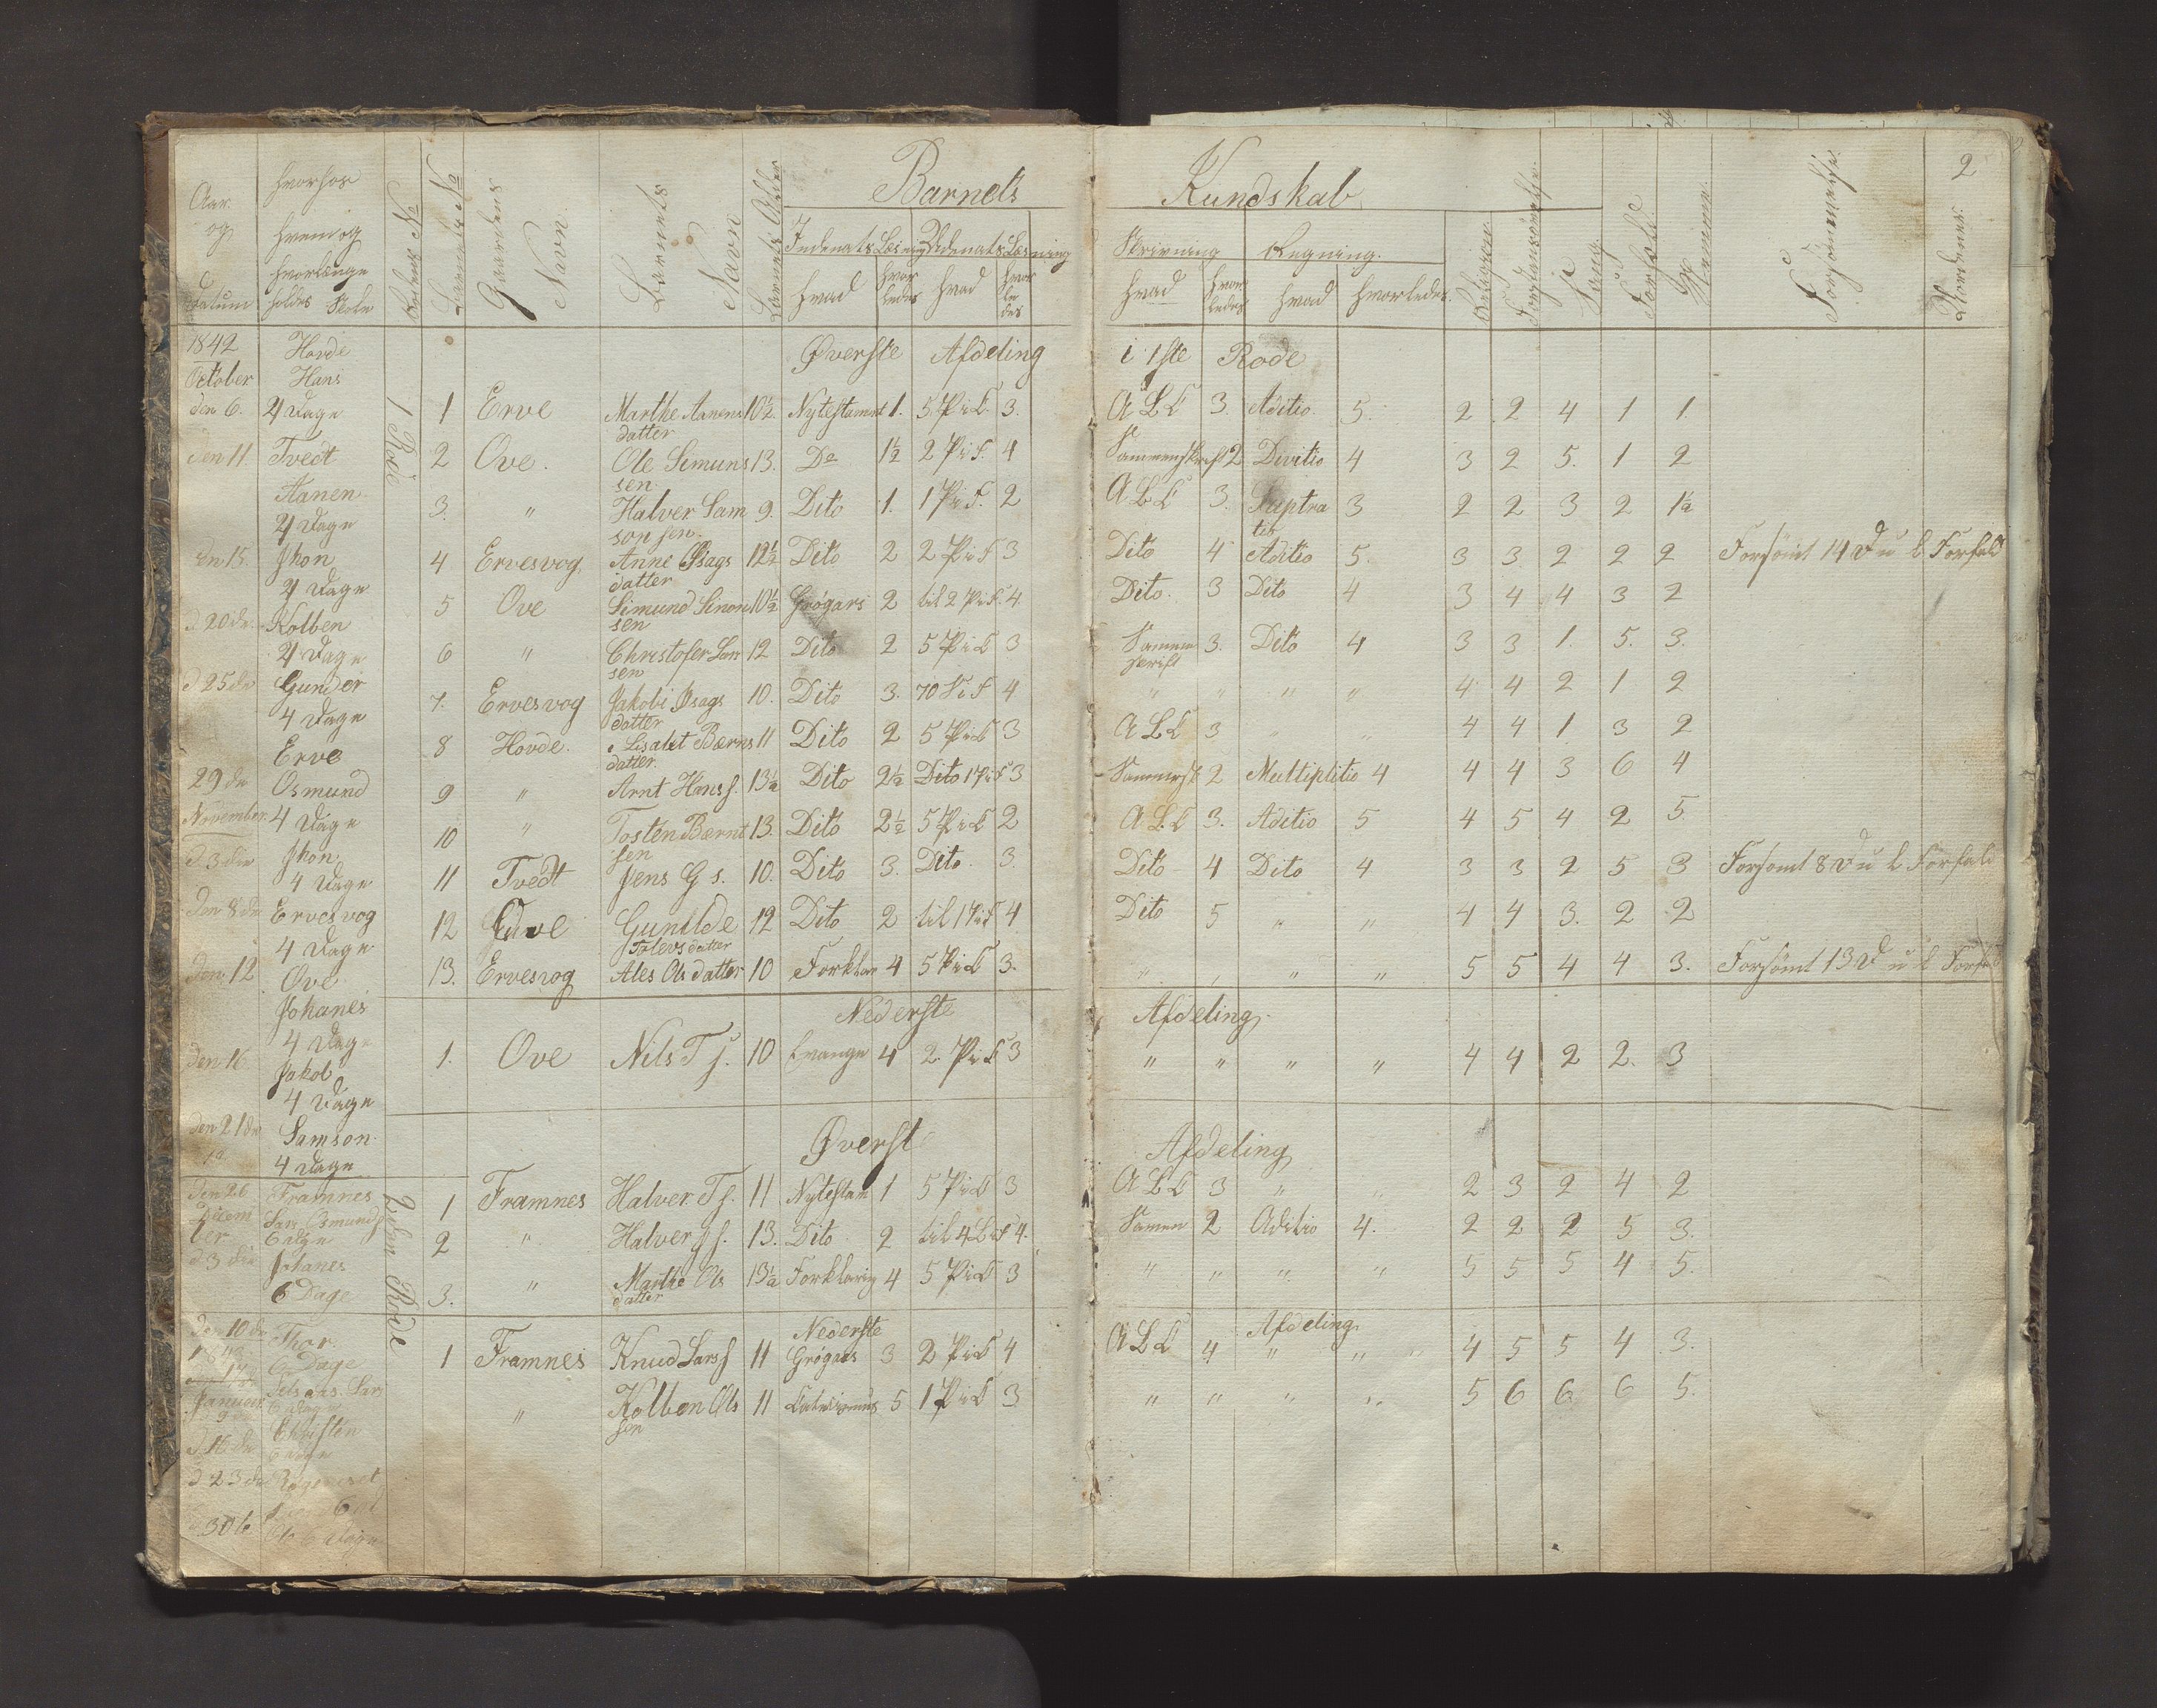 Barnets Kundskab 2
Aar og Datum
hvorhos hvem og hvorlænge holdes Skole
Rodens No
Barnets No
Gaardens Navn
Barnets Navn
Barnets Alder
Indenats Læsning
Udenats Læsning
hvad hvorledes hvad hvorledes
Skrivning Regning
hvad hvorledes hvad hvorledes
Religion
Sang
Forhold
Forsømmelse
1842 Hovde
October Hans
den 6. 4 Dage
den 11 Tvedt
Aanen
4 Dage
den 15 Jhon
4 Dage
d 20de Kolben
4 Dage
d 25de Gunder
4 Dage
Erve
29de Osmund
November 4 Dage
d 3die Jhon
4 Dage
den 8de Ervesvog
4 Dage
den 12 Ove
Johanes
4 Dage
den 16 Jakob
4 Dage
den 21de Samson
4 Dage
den 26 Framnes
Decem Lars Osmunds
ber 6 Dage
d 3die Johanes
6 Dage
den 10de Thor
6 Dage
Januar
d 16de Christen
d 23de
30te
1 Rode
Øverste Afdeling i 1ste Rode
1 Erve Marthe Aanens 10½ Nytestamnt 1. 5 P i L 3. A B C 3. Aditio 5. 2 2 4 1 1
datter
2 Ove. Ole Simuns 13. Do 1½ 2 P i F. 4 Sammenskrift 2 Divitio 4 3 2 5. 1 2
sen
3. " Halver Sam 9. Dito 1. 1 P i F. 2 A B C 3. Suptra 3 2 2 3 2 1½
son sen. tio
4 Ervesvog Anne Isags 12½ Dito 2 2 P i F 3 Dito 4 Aditio 5. 3 3 2 2 2 Forsömt 14 D u L Forfald
datter
5 Ove Simund Simon 10½ Grøgaris 2 til 2 P i F. 4 Dito. 3 Dito 4 3 4 4 3 2
sen
6 " Christofer Lars 12 Dito 2 5 P i L 3 Samem 3. Dito 4 3 3 1. 5. 3.
sen skrift
7. Ervesvog Jakobi Isags 10. Dito 3. 70 S i F 4 " " " " 4 4 2 1 2
datter
8 Hovde. Lisabet Bærns 11 Dito 2 5 P i L 3 A B C 3 " " 4 4 1 3 2
datter.
9 " Arnt Hans s. 13½ Dito 2½ Dito 1 P i F 3 Sammensk 2 Multiplitio 4 4 4 3 6 4
10 " Tosten Bærnt 13. Dito 2½ 5 P i L 2 A B C 3. Aditio 5 4 5 4 2 5
sen
11 Tvedt Jens G s. 10. Dito 3. Dito. 3. Dito 4 Dito 4 3 3 2 5 3 Forsomt 8 D u L Forfald
12 Ove Gunilde 12 Dito 2 til 1 P i F 4 Dito 5 " " 4 4 3. 2 2
Tolevs datter
13. Ervesvog Ales Ols datter 10 Forklar 4 5 P i L 3. " " " " 5 5 4 4 3. Forsömt 13 D u L Forfald
Nederste Afdeling.
1. Ove Nils T s. 10 Evange 4 2 P i L 3 " " " " 4 4 2 2. 3
Øverst Afdeling
2den Rode
1 Framnes Halver T s. 11 Nytestam 1 5 P i L 3 A B C 3 " " 2 3 2 4 2
2 " Halver s s. 13. Dito. 2 til 4 L i F 4. Samen 2 Aditio 4. 2 2 2 5 3.
3. " Marthe Ols 13½ Forklaring 4 5 P i L 3 " " " " 5 5 5 4 5.
datter
Nederste Afdeling.
1 Framnes Knud Lars s 11 Grøgaris 3 2 P i L 4 A B C 4 " " 4 5 5 4 3.
" Kolben Ols 11 Catecismus 5 1 P i L 3 " " " " 5 6 6 6 5.
sen